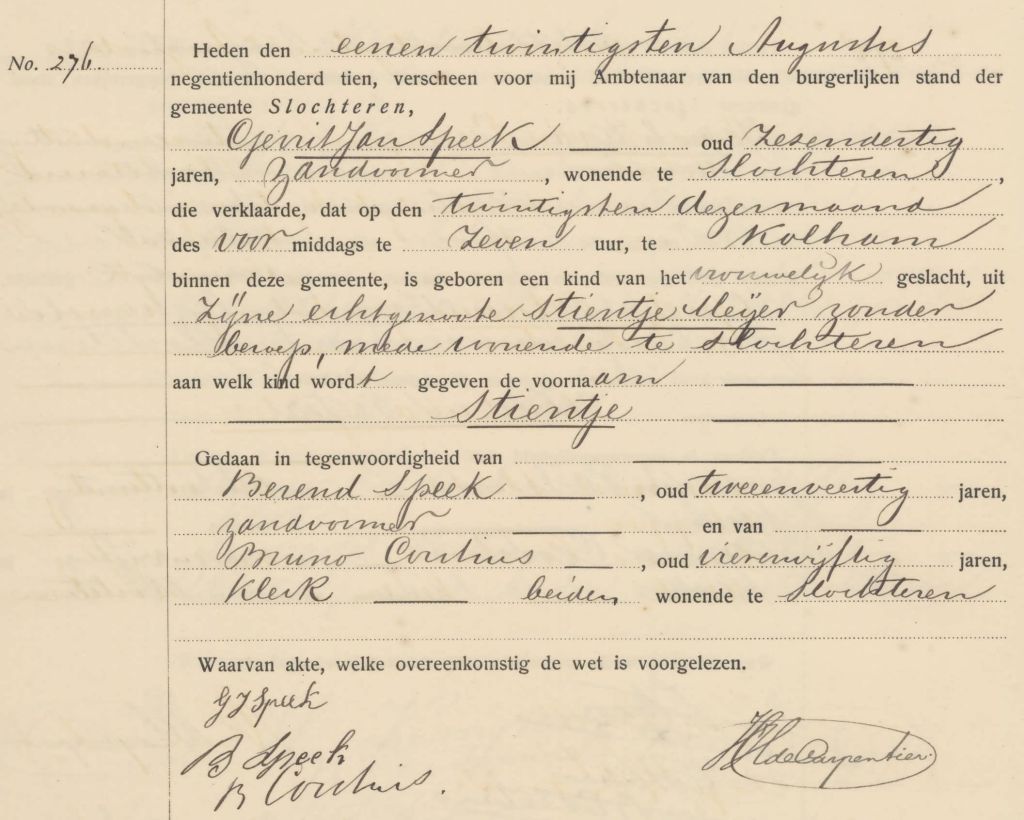 No. 276.
Heden den eenen twintigsten Augustus
negentienhonderd tien, verscheen voor mij Ambtenaar van den burgerlijken stand der
gemeente Slochteren,
Gerrit Jan Speek oud Zesendertig
jaren, zandvormer, wonende te Slochteren,
die verklaarde, dat op den twintigsten dezer maand
des voor middags te Zeven uur, te Kolham
binnen deze gemeente, is geboren een kind van het vrouwelijk geslacht, uit
Zijne echtgenoote Stientje Meijer zonder
beroep, mede wonende te Slochteren
aan welk kind wordt gegeven de voornaam
Stientje
Gedaan in tegenwoordigheid van
Berend Speek, oud tweeenveertig jaren,
zandvormer en van
Bruno, oud vierenvijftig jaren,
Klerk beiden, wonende te Slochteren
Waarvan akte, welke overeenkomstig de wet is voorgelezen.
G J Speek
B Speek
B
de Carpentier.